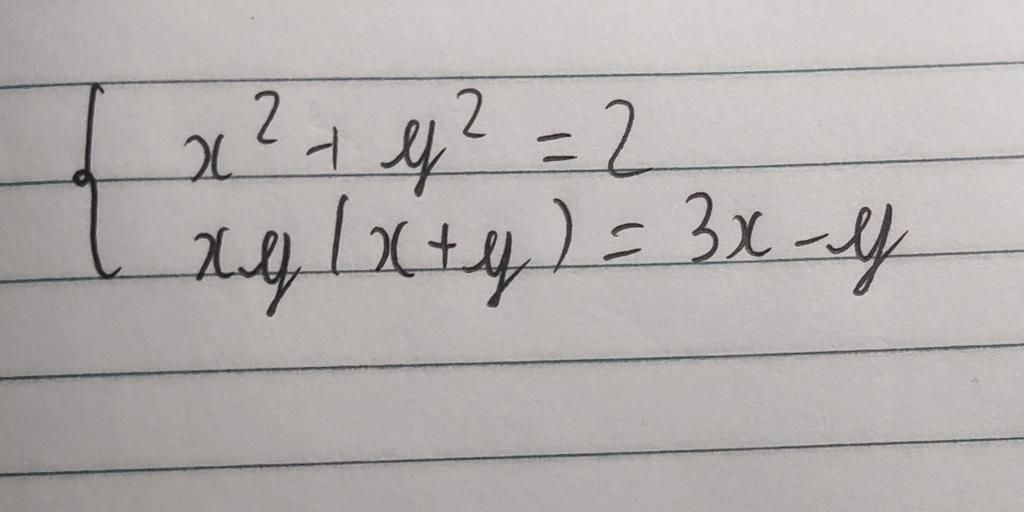 x² + y² = 2
xy(x+y) = 3x - y